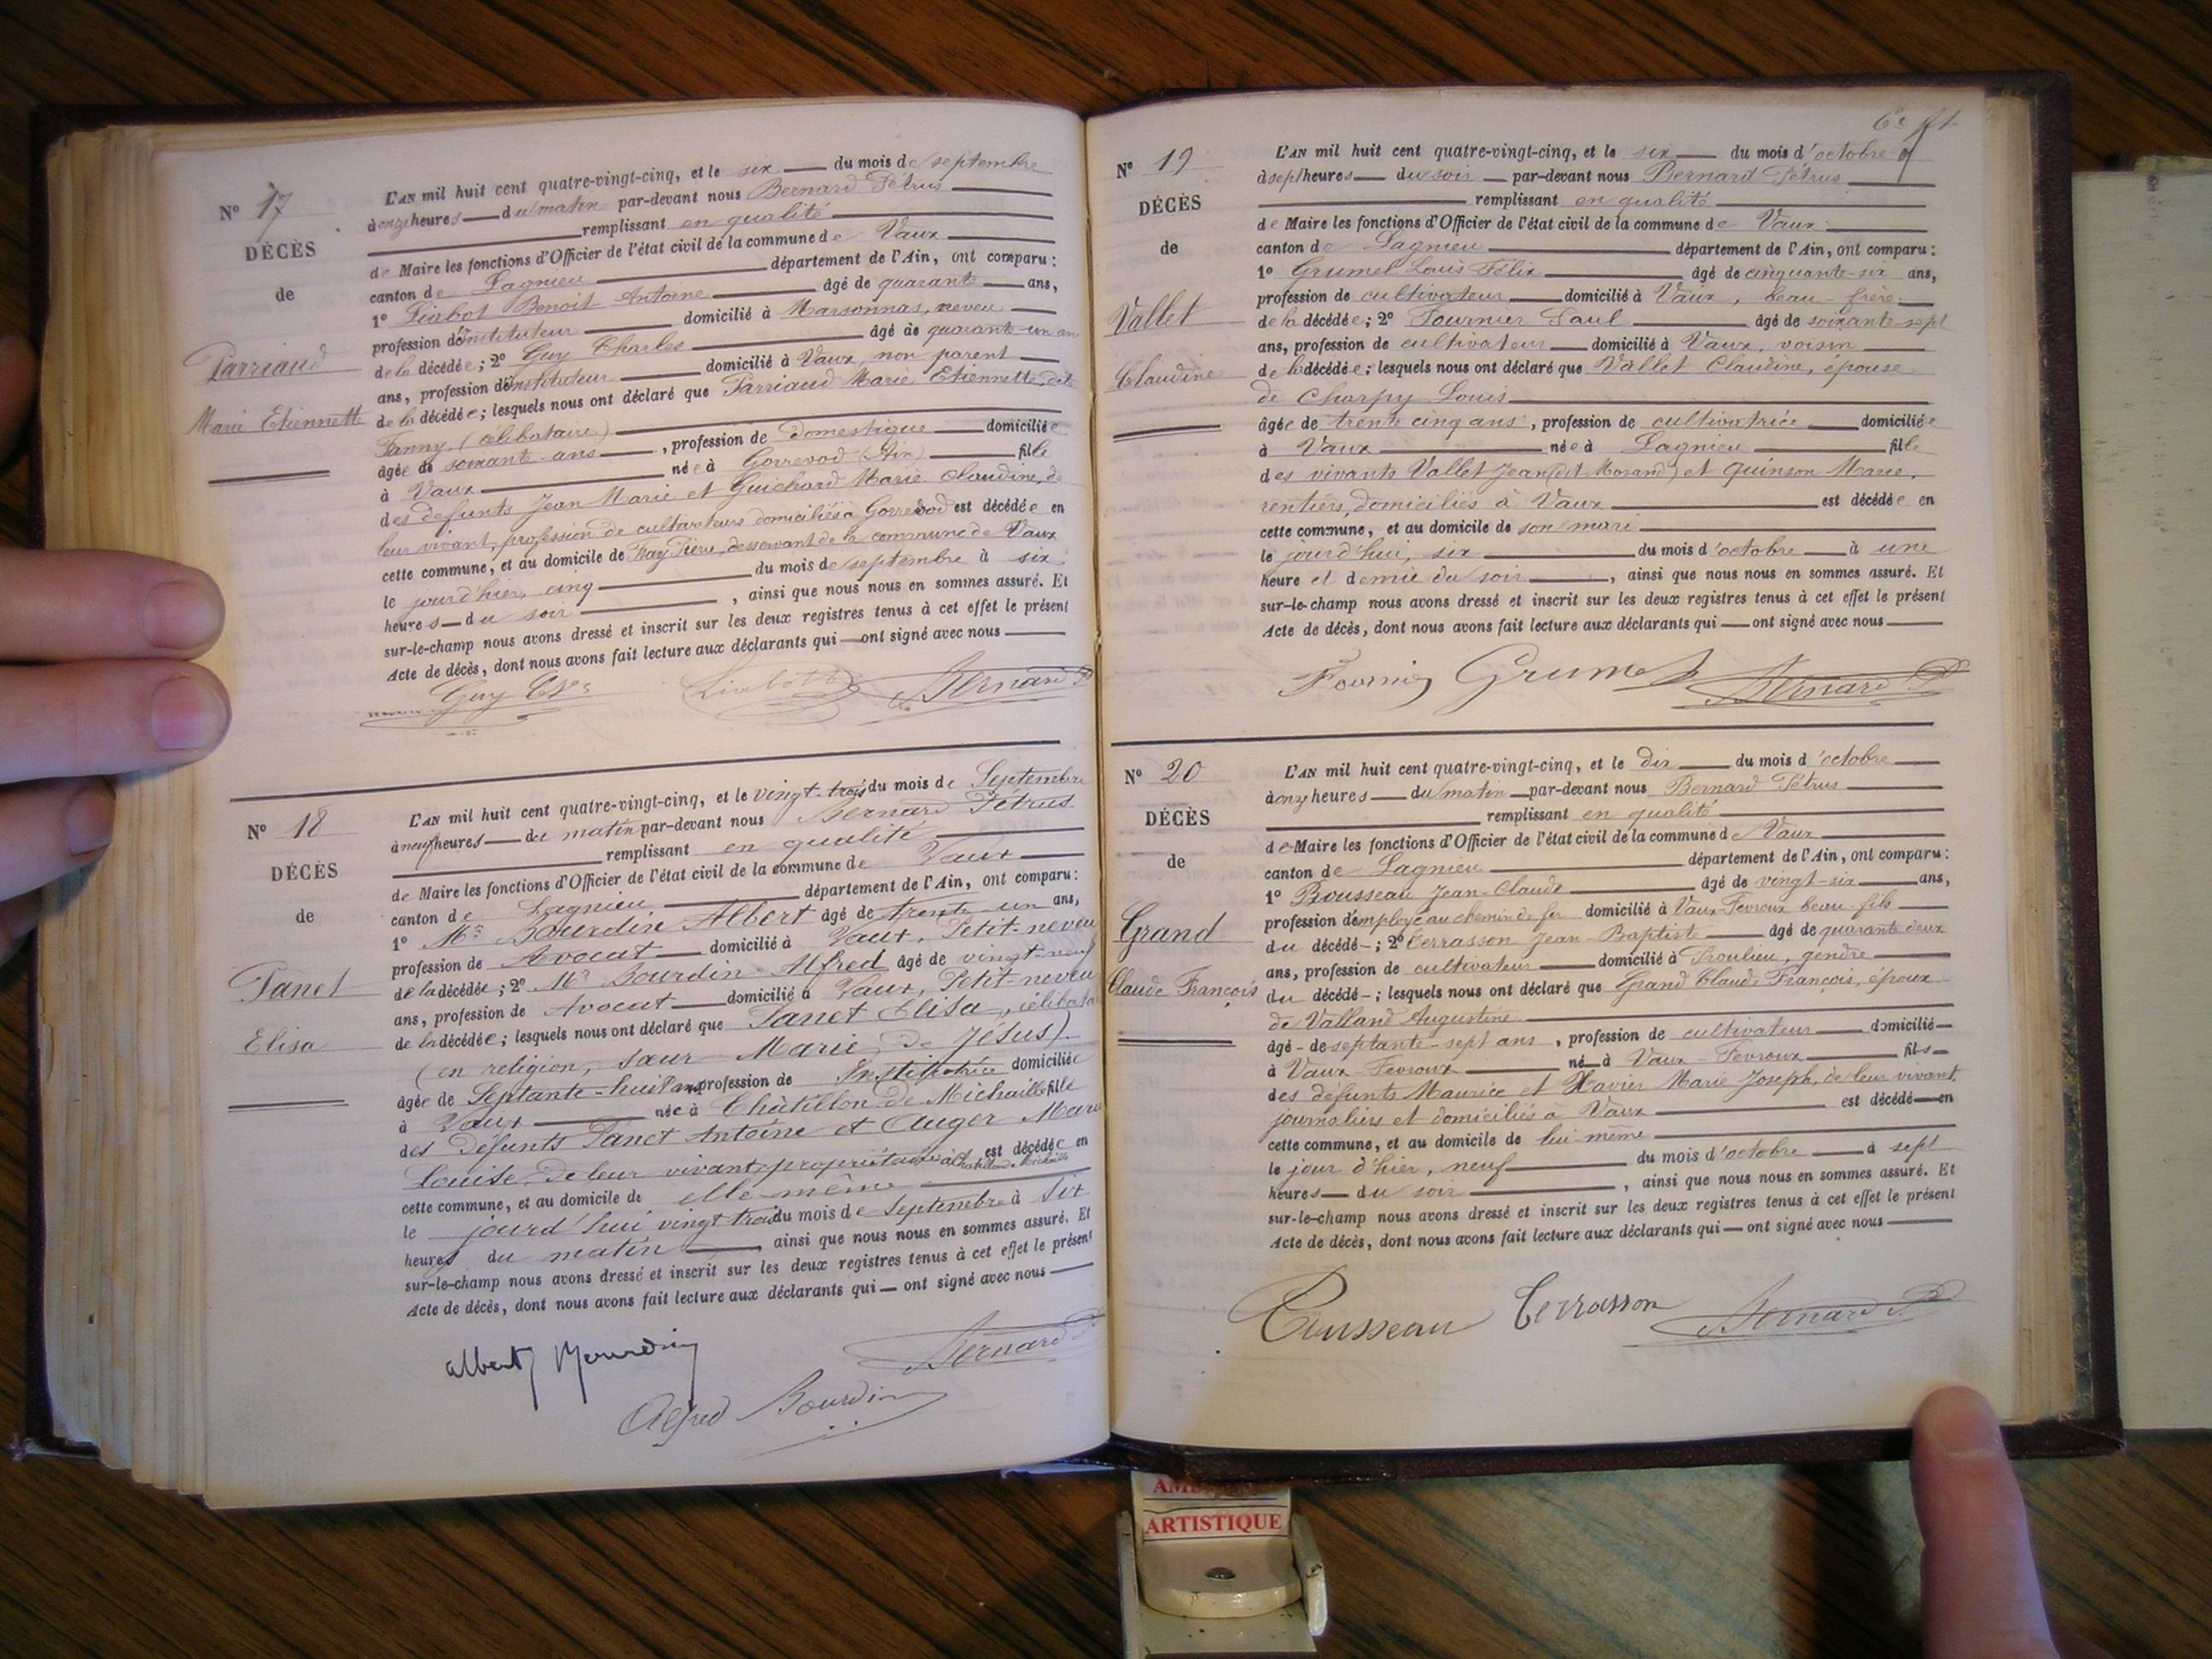 Nº 17
DÉCÈS
de
Parriaud
Marie Etiennette
L'AN mil huit cent quatre-vingt-cinq, et le six du mois de septembre
à onze heures du matin par-devant nous Bernard Pétrus
remplissant en qualité
de Maire les fonctions d'Officier de l'état civil de la commune de Vaux
canton de Lagnieu département de l'Ain, ont comparu :
1º Liabot Benoit Antoine âgé de quarante ans,
profession d'Instituteur domicilié à Marsonnas, neveu
de la décédée ; 2º Guy Charles âgé de quarante-un an
ans, profession d'Instituteur domicilié à Vaux, non parent
de la décédée ; lesquels nous ont déclaré que Parriaud Marie Etiennette, dit
Fanny (célibataire)
âgée de soixante ans, profession de domestique domiciliée
à Vaux née à Gorrevod (Ain) fille
des défunts Jean Marie et Guichard Marie Claudine, de
leur vivant, profession de cultivateurs domiciliés à Gorrevod est décédée en
cette commune, et au domicile de Fray Pierre, desservant de la commune de Vaux
le jour d'hier, cinq du mois de septembre à six
heures du soir, ainsi que nous nous en sommes assuré. Et
sur-le-champ nous avons dressé et inscrit sur les deux registres tenus à cet effet le présent
Acte de décès, dont nous avons fait lecture aux déclarants qui ont signé avec nous
Guy Ch.es Liabot Bernard P
Nº 18
DÉCÈS
de
Panet
Elisa
L'AN mil huit cent quatre-vingt-cinq, et le vingt-trois du mois de Septembre
à neuf heures du matin par-devant nous Bernard Pétrus
remplissant en qualité
de Maire les fonctions d'Officier de l'état civil de la commune de Vaux
canton de Lagnieu département de l'Ain, ont comparu :
1º Mr Bourdin Albert âgé de trente un ans,
profession de Avocat domicilié à Vaux, Petit-neveu
de la décédée ; 2º Mr Bourdin Alfred âgé de vingt-neuf
ans, profession de Avocat domicilié à Vaux, Petit-neveu
de la décédée ; lesquels nous ont déclaré que Panet Elisa, célibata
(en religion, sœur Marie de Jésus)
âgée de Septante-huit ans profession de Institutrice domiciliée
à Vaux née à Châtillon de Michaille fille
des Défunts Panet Antoine et Auger Marie
Louise, de leur vivant propriétaires à Chatillon de Michaille est décédée en
cette commune, et au domicile de elle-même
le jourd'hui vingt trois du mois de Septembre à six
heures du matin, ainsi que nous nous en sommes assuré. Et
sur-le-champ nous avons dressé et inscrit sur les deux registres tenus à cet effet le présent
Acte de décès, dont nous avons fait lecture aux déclarants qui ont signé avec nous
Albert Bourdin Bernard P
Alfred Bourdin
Nº 19
DÉCÈS
de
Vallet
Claudine
L'AN mil huit cent quatre-vingt-cinq, et le six du mois d'octobre
à sept heures du soir par-devant nous Bernard Pétrus
remplissant en qualité
de Maire les fonctions d'Officier de l'état civil de la commune de Vaux
canton de Lagnieu département de l'Ain, ont comparu :
1º Grumel Louis Félix âgé de cinquante-six ans,
profession de cultivateur domicilié à Vaux, beau-frère
de la décédée ; 2º Fournier Paul âgé de soixante-sept
ans, profession de cultivateur domicilié à Vaux, voisin
de la décédée ; lesquels nous ont déclaré que Vallet Claudine, épouse
de Charpy Louis
âgée de trente cinq ans, profession de cultivatrice domiciliée
à Vaux née à Lagnieu fille
des vivants Vallet Jean (dit Morand) et Quinson Marie,
rentiers, domiciliés à Vaux est décédée en
cette commune, et au domicile de son mari
le jourd'hui, six du mois d'octobre à une
heure et demie du soir, ainsi que nous nous en sommes assuré. Et
sur-le-champ nous avons dressé et inscrit sur les deux registres tenus à cet effet le présent
Acte de décès, dont nous avons fait lecture aux déclarants qui ont signé avec nous
Fournier Grumel Bernard P
Nº 20
DÉCÈS
de
Grand
Claude François
L'AN mil huit cent quatre-vingt-cinq, et le dix du mois d'octobre
à onze heures du matin par-devant nous Bernard Pétrus
remplissant en qualité
de Maire les fonctions d'Officier de l'état civil de la commune de Vaux
canton de Lagnieu département de l'Ain, ont comparu :
1º Rousseau Jean-Claude âgé de vingt-six ans,
profession d'employé au chemin de fer domicilié à Vaux-Fevroux beau-fils
du décédé ; 2º Terrasson Jean-Baptiste âgé de quarante deux
ans, profession de cultivateur domicilié à Proulieu, gendre
du décédé ; lesquels nous ont déclaré que Grand Claude François, époux
de Valland Augustine
âgé de septante-sept ans, profession de cultivateur domicilié
à Vaux-Fevroux né à Vaux-Fevroux fils
des défunts Maurice et Xavier Marie Joseph, de leur vivant
journaliers et domiciliés à Vaux est décédé en
cette commune, et au domicile de lui même
le jour d'hier, neuf du mois d'octobre à sept
heures du soir, ainsi que nous nous en sommes assuré. Et
sur-le-champ nous avons dressé et inscrit sur les deux registres tenus à cet effet le présent
Acte de décès, dont nous avons fait lecture aux déclarants qui ont signé avec nous
Rousseau Terrasson Bernard P
ARTISTIQUE